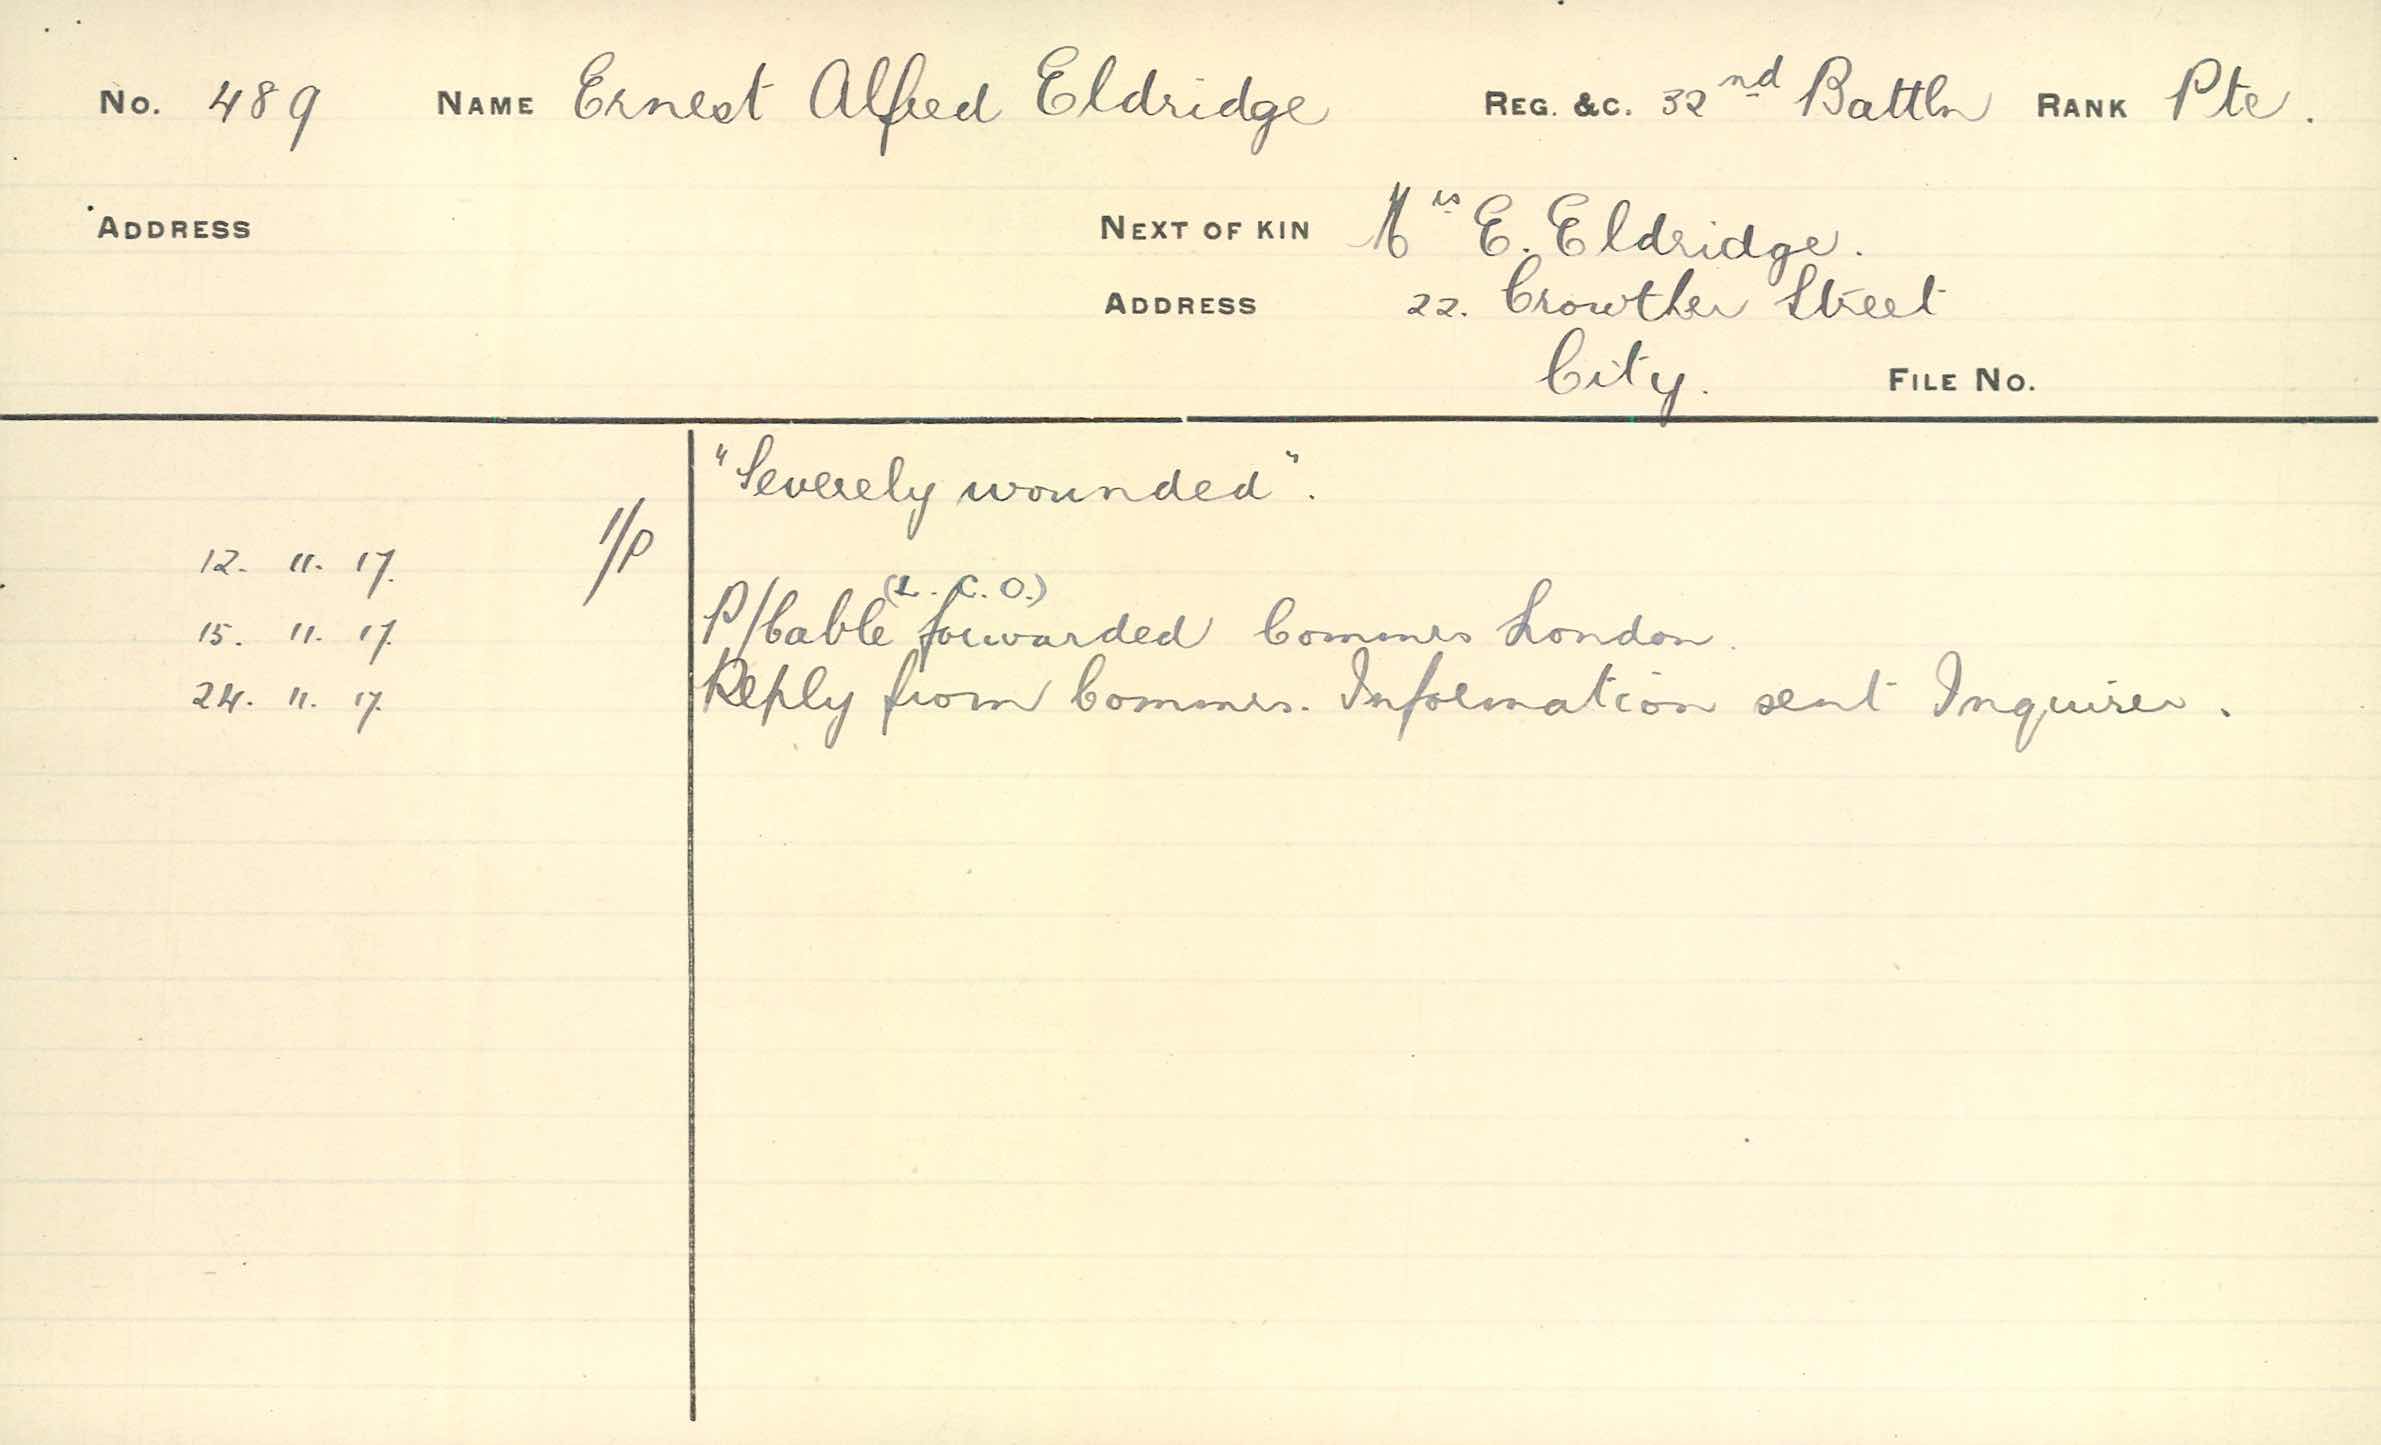 No. 489 NAME Ernest Alfred Eldridge REG. &C. 32nd Battln RANK Pte.
ADDRESS NEXT OF KIN Mrs E. Eldridge.
ADDRESS 22. Crowther Street
City. FILE No.
"Severely wounded".
12. 11. 17. I/P
(L. C. O.)
15. 11. 17. P/Cable forwarded Commrs London.
24. 11. 17. Reply from Commrs. Information sent Inquirer.